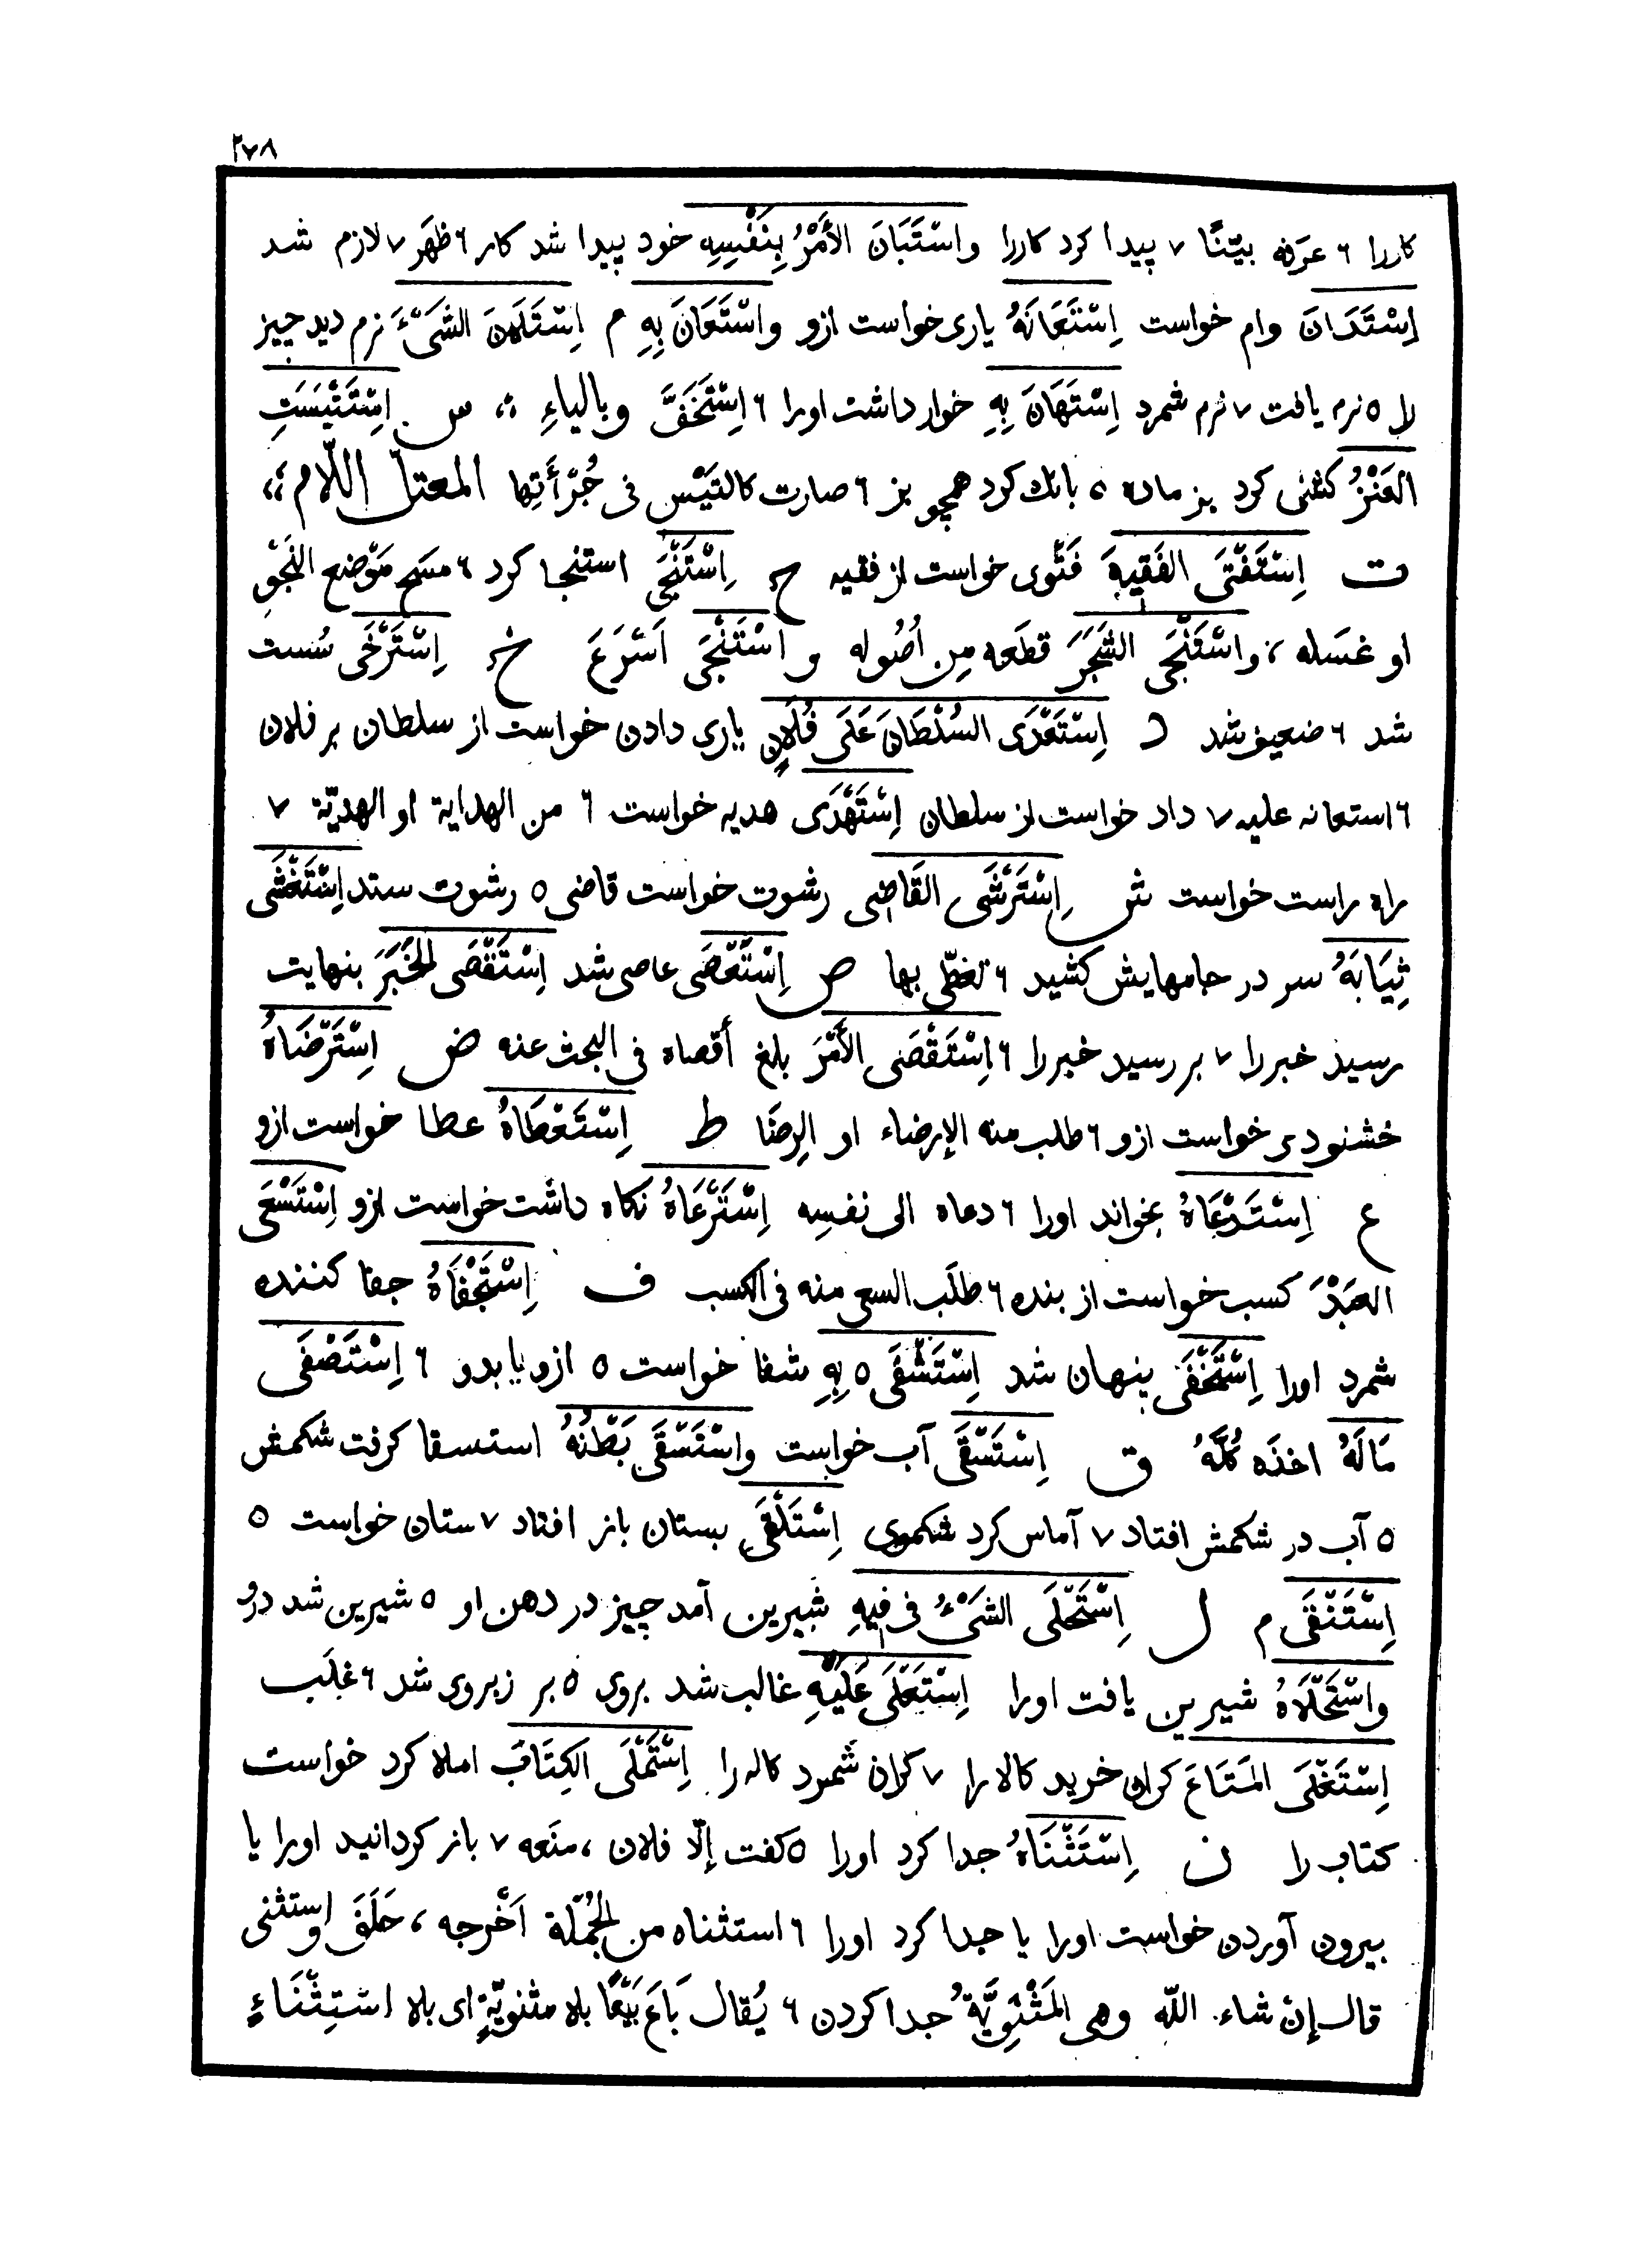 ٢٧٨
كاررا ٦ عرَفه بيّنًا ٧ پيدا كرد كاررا واسْتَبَانَ الأَمْرُ بِنَفْسِهِ خود پيدا شد كار ٦ ظهَر ٧ لازم شد
اِسْتَدَانَ وام خواست اِسْتَعَانَهُ يارى خواست ازو واسْتَعَانَ بِهِ م اِسْتَلَانَ الشَىْءَ نرم ديد چيز
را ٥ نرم يافت ٧ نرم شمرد اِسْتَهَانَ بِهِ خوار داشت اورا ٦ اِسْتَخَفَّ وبالياءِ ؞ س اِسْتَتْيَسَتِ
العَنْزُ كشنى كرد بز ماده ٥ بانك كرد همچو بز ٦ صارت كالتَيْس فى جُرْأَتِها المعتل اللّام ؞
ت اِسْتَفْتَى الفَقِيهَ فَتْوى خواست از فقيه ج اِسْتَنْجَى استنجا كرد ٦ مسَح مَوْضع النَجْوِ
او غسَله ، واسْتَنْجَى الشَجَرَ قطَعه مِن اُصُوله و اسْتَنْجَى اَسْرَعَ خ اِسْتَرْخَى سُست
شد ٦ ضعيف شد د اِسْتَعْدَى السُلْطَانَ عَلَى فُلَانٍ يارى دادن خواست از سلطان بر فلان
٦ استعانه عليه ٧ داد خواست از سلطان اِسْتَهْدَى هديه خواست ٦ من الهداية او الهديّة ٧
راه راست خواست ش اِسْتَرْشَى القَاضِى رشوت خواست قاضى ٥ رشوت ستد اِسْتَغْشَى
ثِيَابَهُ سر در جامهايش كشيد ٦ تغطّى بها ص اِسْتَعْصَى عاصى شد اِسْتَقْصَى الخَبَرَ بنهايت
رسيد خبررا ٧ بر رسيد خبررا ٦ اِسْتَقْصَى الأَمْرَ بلغ أَقصاه فى البحث عنه ض اِسْتَرْضَاهُ
خشنودى خواست ازو ٦ طلب منه الإرضاء او الرِضَا ط اِسْتَعْطَاهُ عطا خواست ازو
ع اِسْتَدْعَاهُ بخواند اورا ٦ دعاه الى نفسِه اِسْتَرْعَاهُ نكاه داشت خواست ازو اِسْتَسْعَى
العَبْدَ كسب خواست از بنده ٦ طلَب السعى منه فى الكسب ف اِسْتَجْفَاهُ جفا كننده
شمرد اورا اِسْتَخْفَى پنهان شد اِسْتَشْفَى ٥ بِهِ شفا خواست ٥ ازو يا بدو ٦ اِسْتَصْفَى
مَالَهُ اخذَه كُلَّهُ ق اِسْتَسْقَى آب خواست واسْتَسْقَى بَطْنُهُ استسقا كرفت شكمش
٥ آب در شكمش افتاد ٧ آماس كرد شكموى اِسْتَلْقَى بستان باز افتاد ٧ ستان خواست ٥
اِسْتَنْقَى م ل اِسْتَحْلَى الشَىْءُ فى فِيهِ شيرين آمد چيز در دهن او ٥ شيرين شد درو
واسْتَحْلَاهُ شيرين يافت اورا اِسْتَعْلَى عَلَيْهِ غالب شد بروى ٥ بر زبروى شد ٦ غلَب
اِسْتَغْلَى المَتَاعَ كران خريد كالا را ٧ كران شمرد كاله را اِسْتَمْلَى الكِتَابَ املا كرد خواست
كتاب را ن اِسْتَثْنَاهُ جدا كرد اورا ٥ كفت إلّا فلان ، منَعه ٧ باز كردانيد اورا يا
بيرون آوردن خواست اورا يا جدا كرد اورا ٦ استثناه من الجُمْلة اَخْرجه ، حَلَفَ واستثنى
قال إن شاء الله وهى المَثْنَوِيَّةُ جدا كردن ٦ يُقال بَاعَ بَيْعًا بلا مثنويّةٍ اى بلا اسْتِثْنَاءٍ